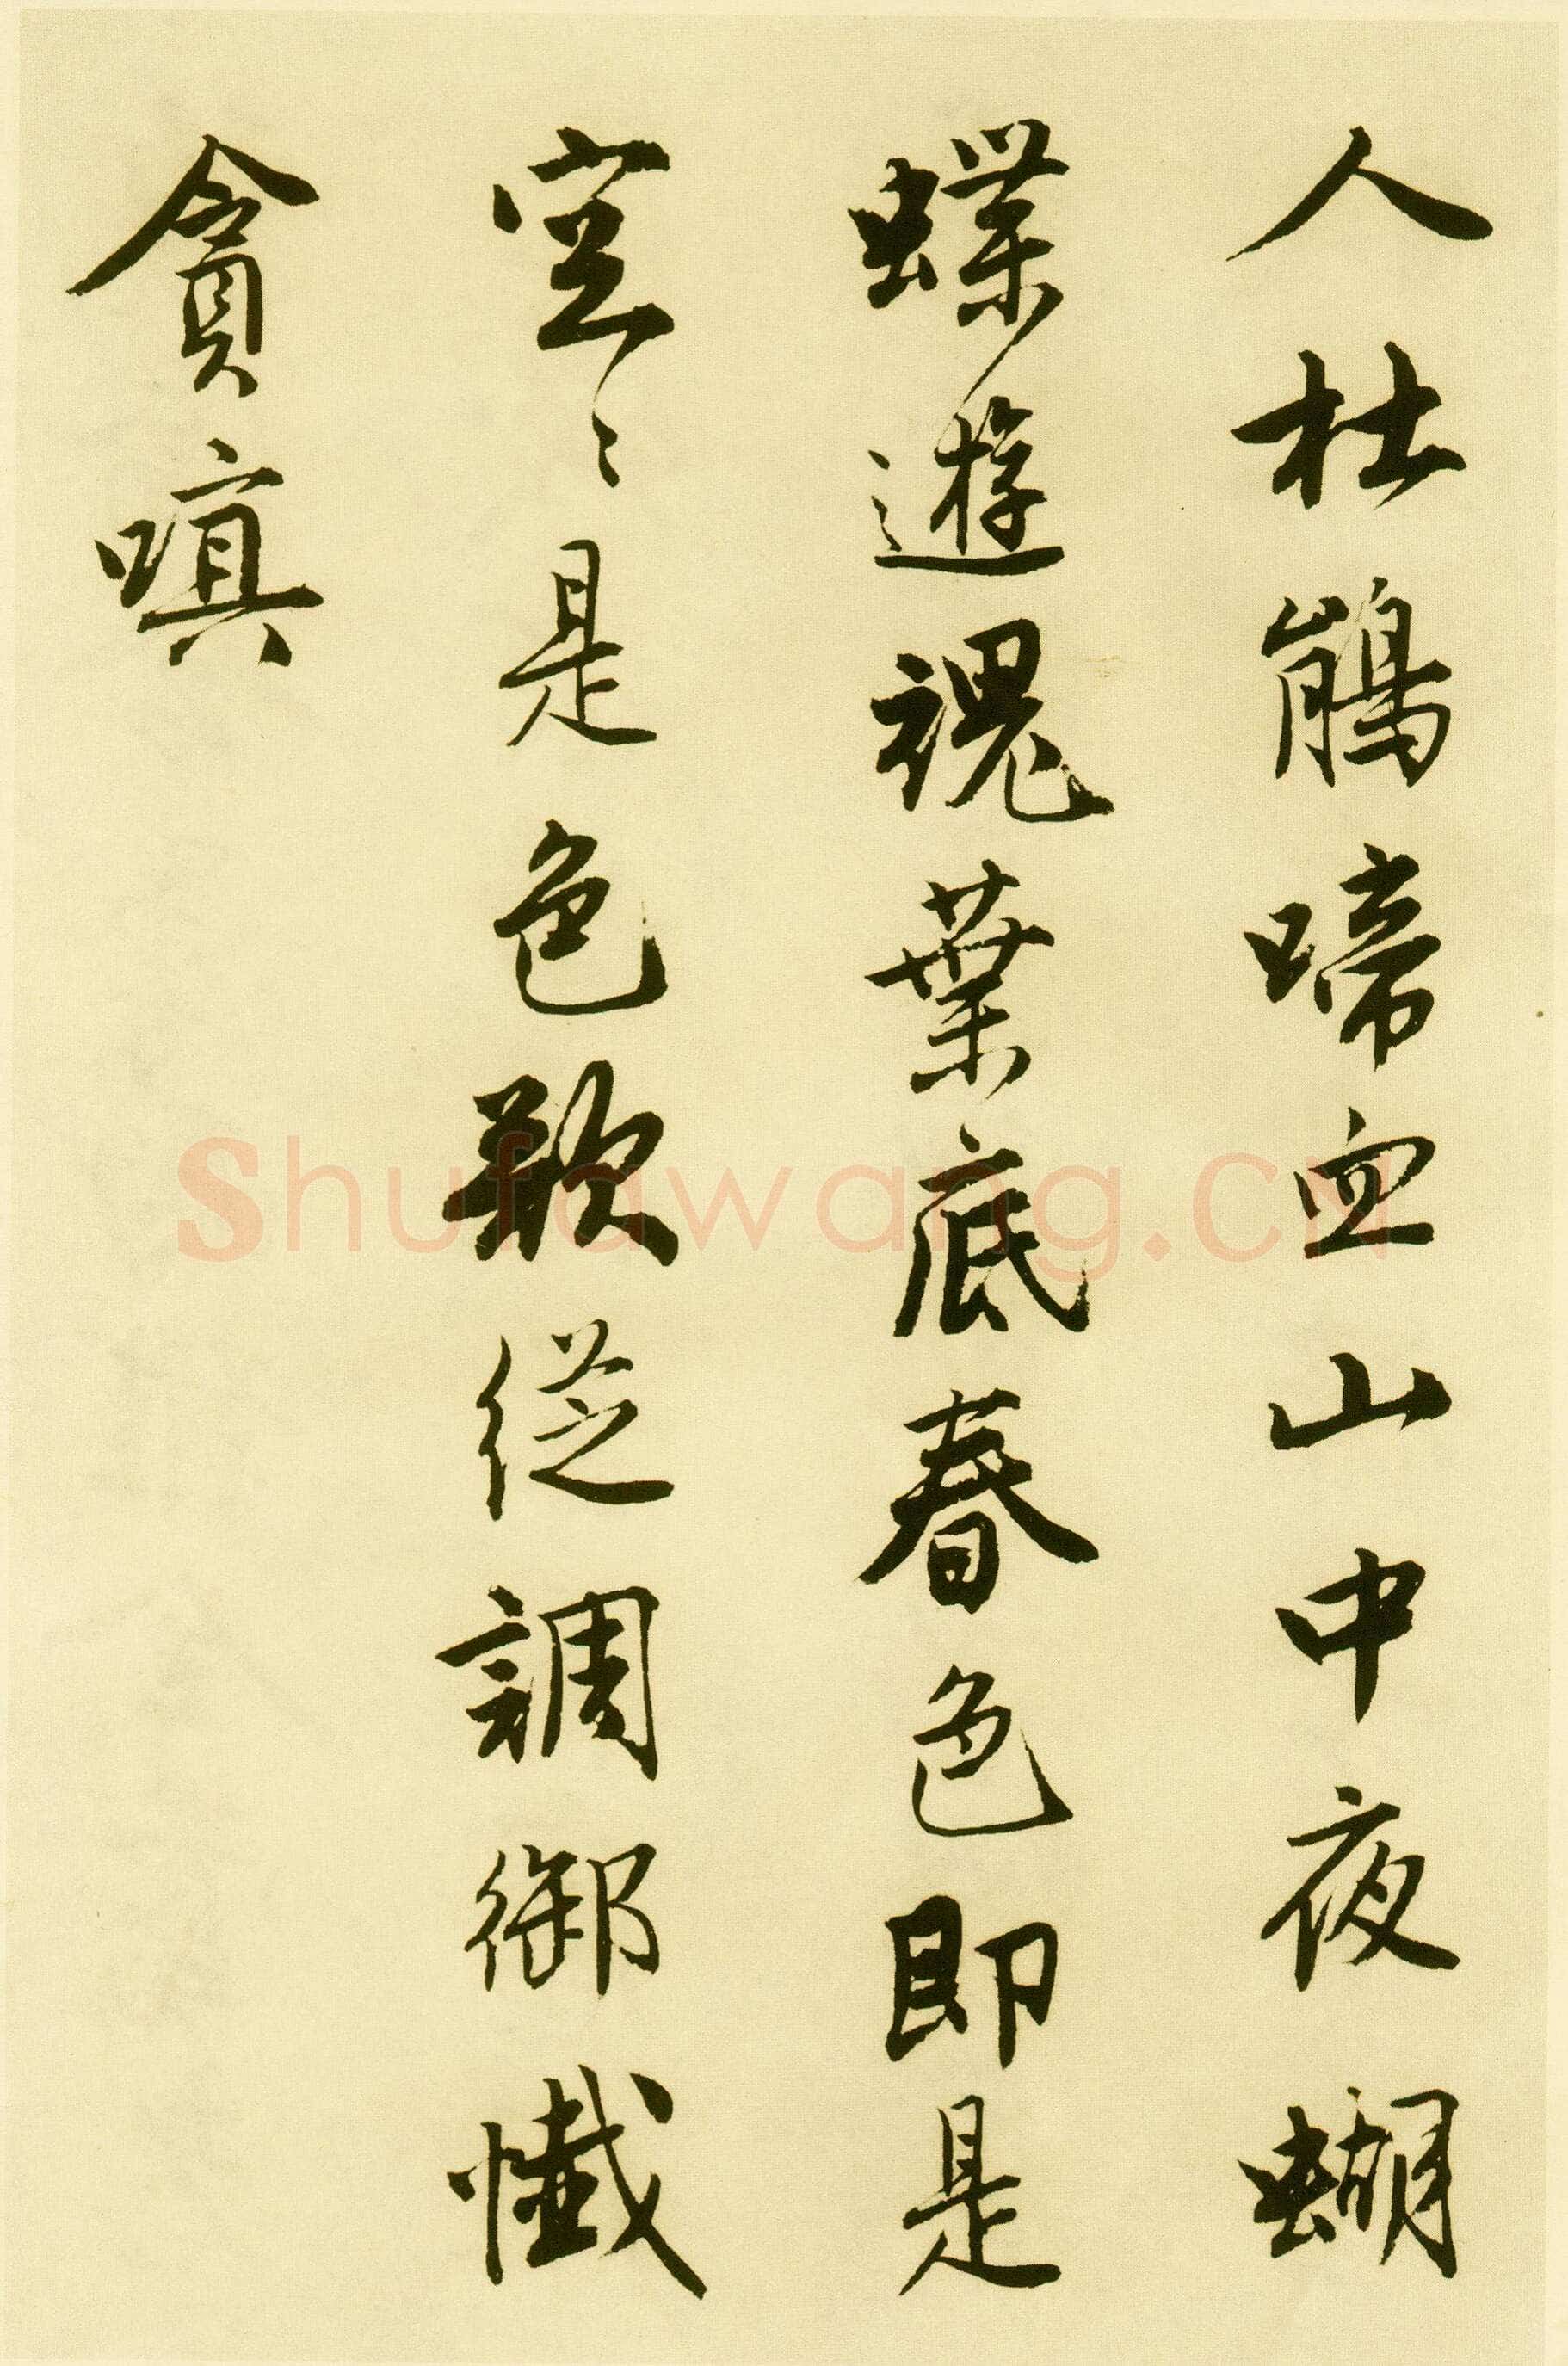 人杜鵑啼血山中夜蝴
蝶遊魂葉底春色即是
空〻是色欲從調御懺
貪嗔
Shufawang.cn